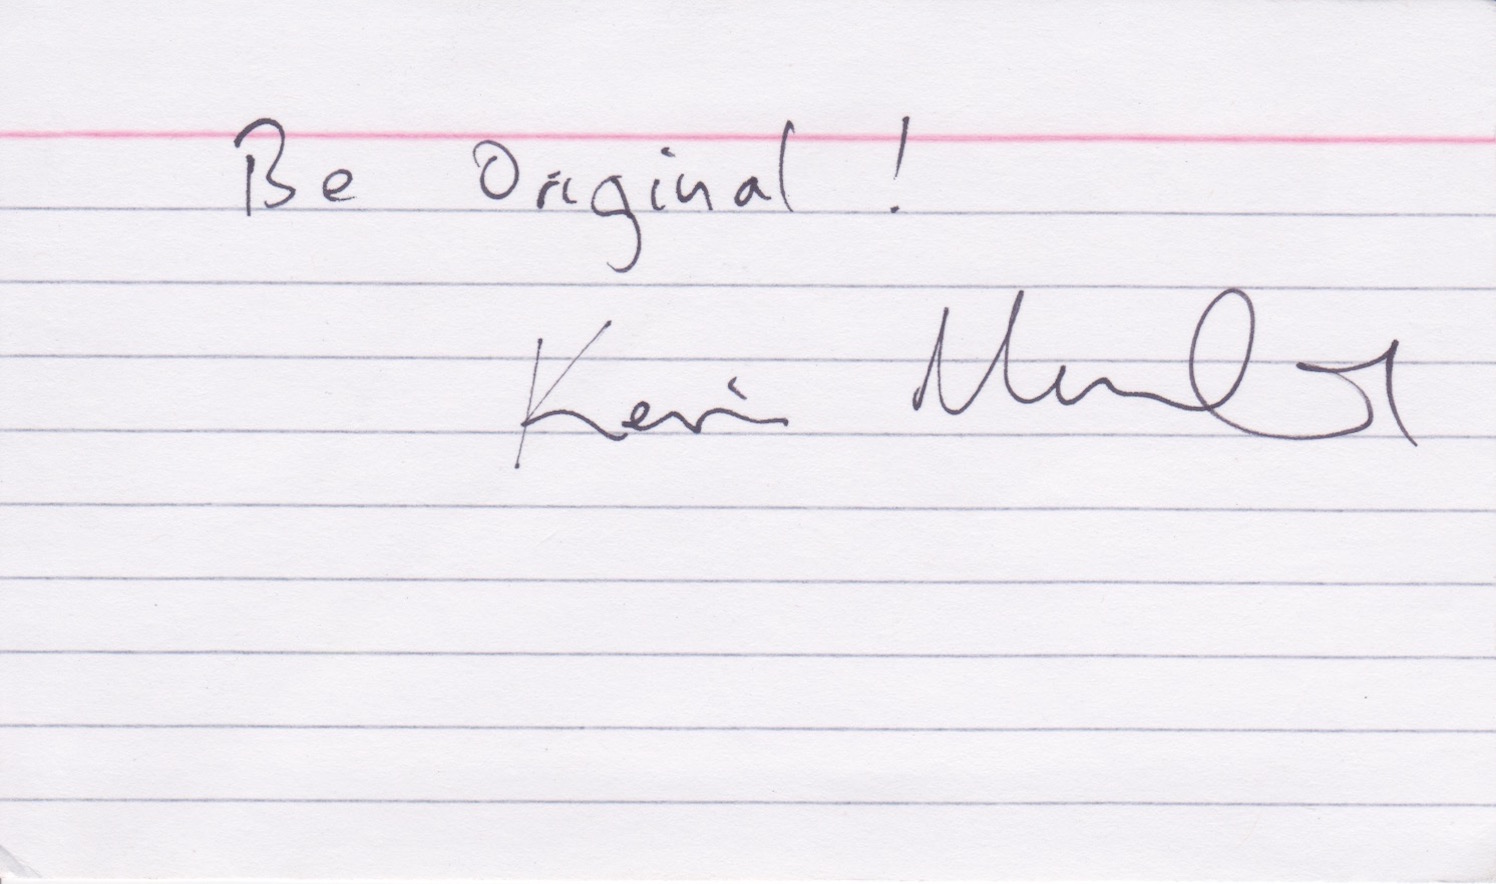 Be Original !
Kevin